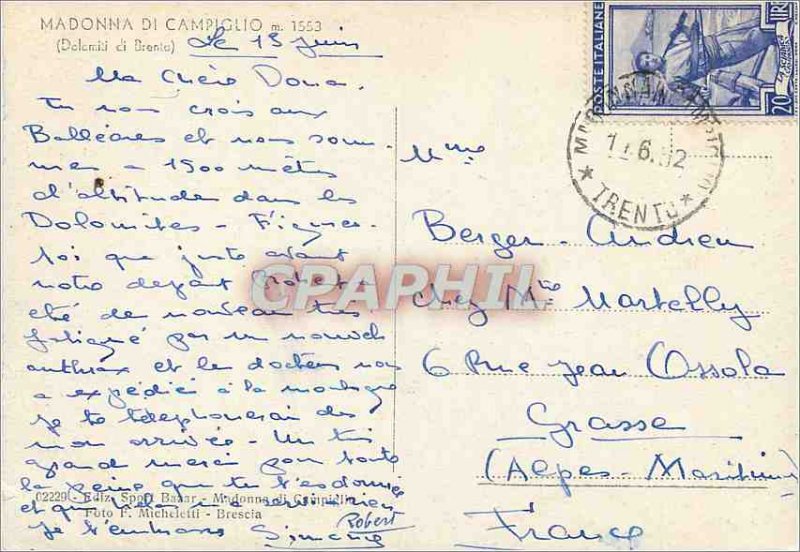 MADONNA DI CAMPIGLIO m. 1553
(Dolomiti di Brenta)
Le 13 juin
Ma Chère Dona.
Tu nous crois aux
Baléares et nous som-
mes à 1500 mètres
d'altitude dans les
Dolomites - Figure-
toi que juste avant
notre départ Robert a
été de nouveau très
fatigué par un nouvel
anthrax et le docteur nous
a expédié à la montagne
je te téléphonerai dès
mon arrivée - Un très
grand merci pour toute
la peine que tu t'es donnée
et que
je t'embrasse Simone
Robert
02229 - Ediz. Sport Bazar - Madonna di Campiglio
Foto F. Micheletti - Brescia
POSTE ITALIANE
20 LIRE
TRENTO
Mme
Berger-Andrieu
chez Mme Martelly
6 Rue Jean Ossola
Grasse
(Alpes-Maritimes)
France
CPAPHIL